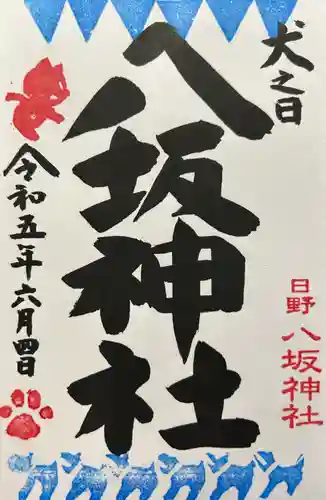 犬之日
八坂神社
令和五年六月四日
日野
八坂神社